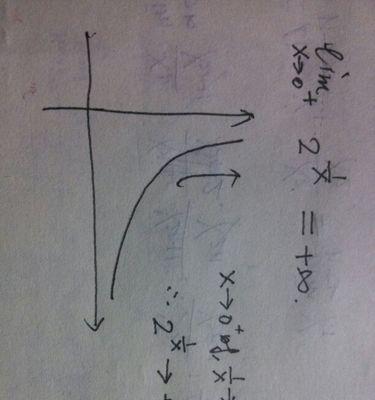 lim x→0⁺ 2^(1/x) = +∞.
x→0⁺时, 1/x→
∴ 2^(1/x) →